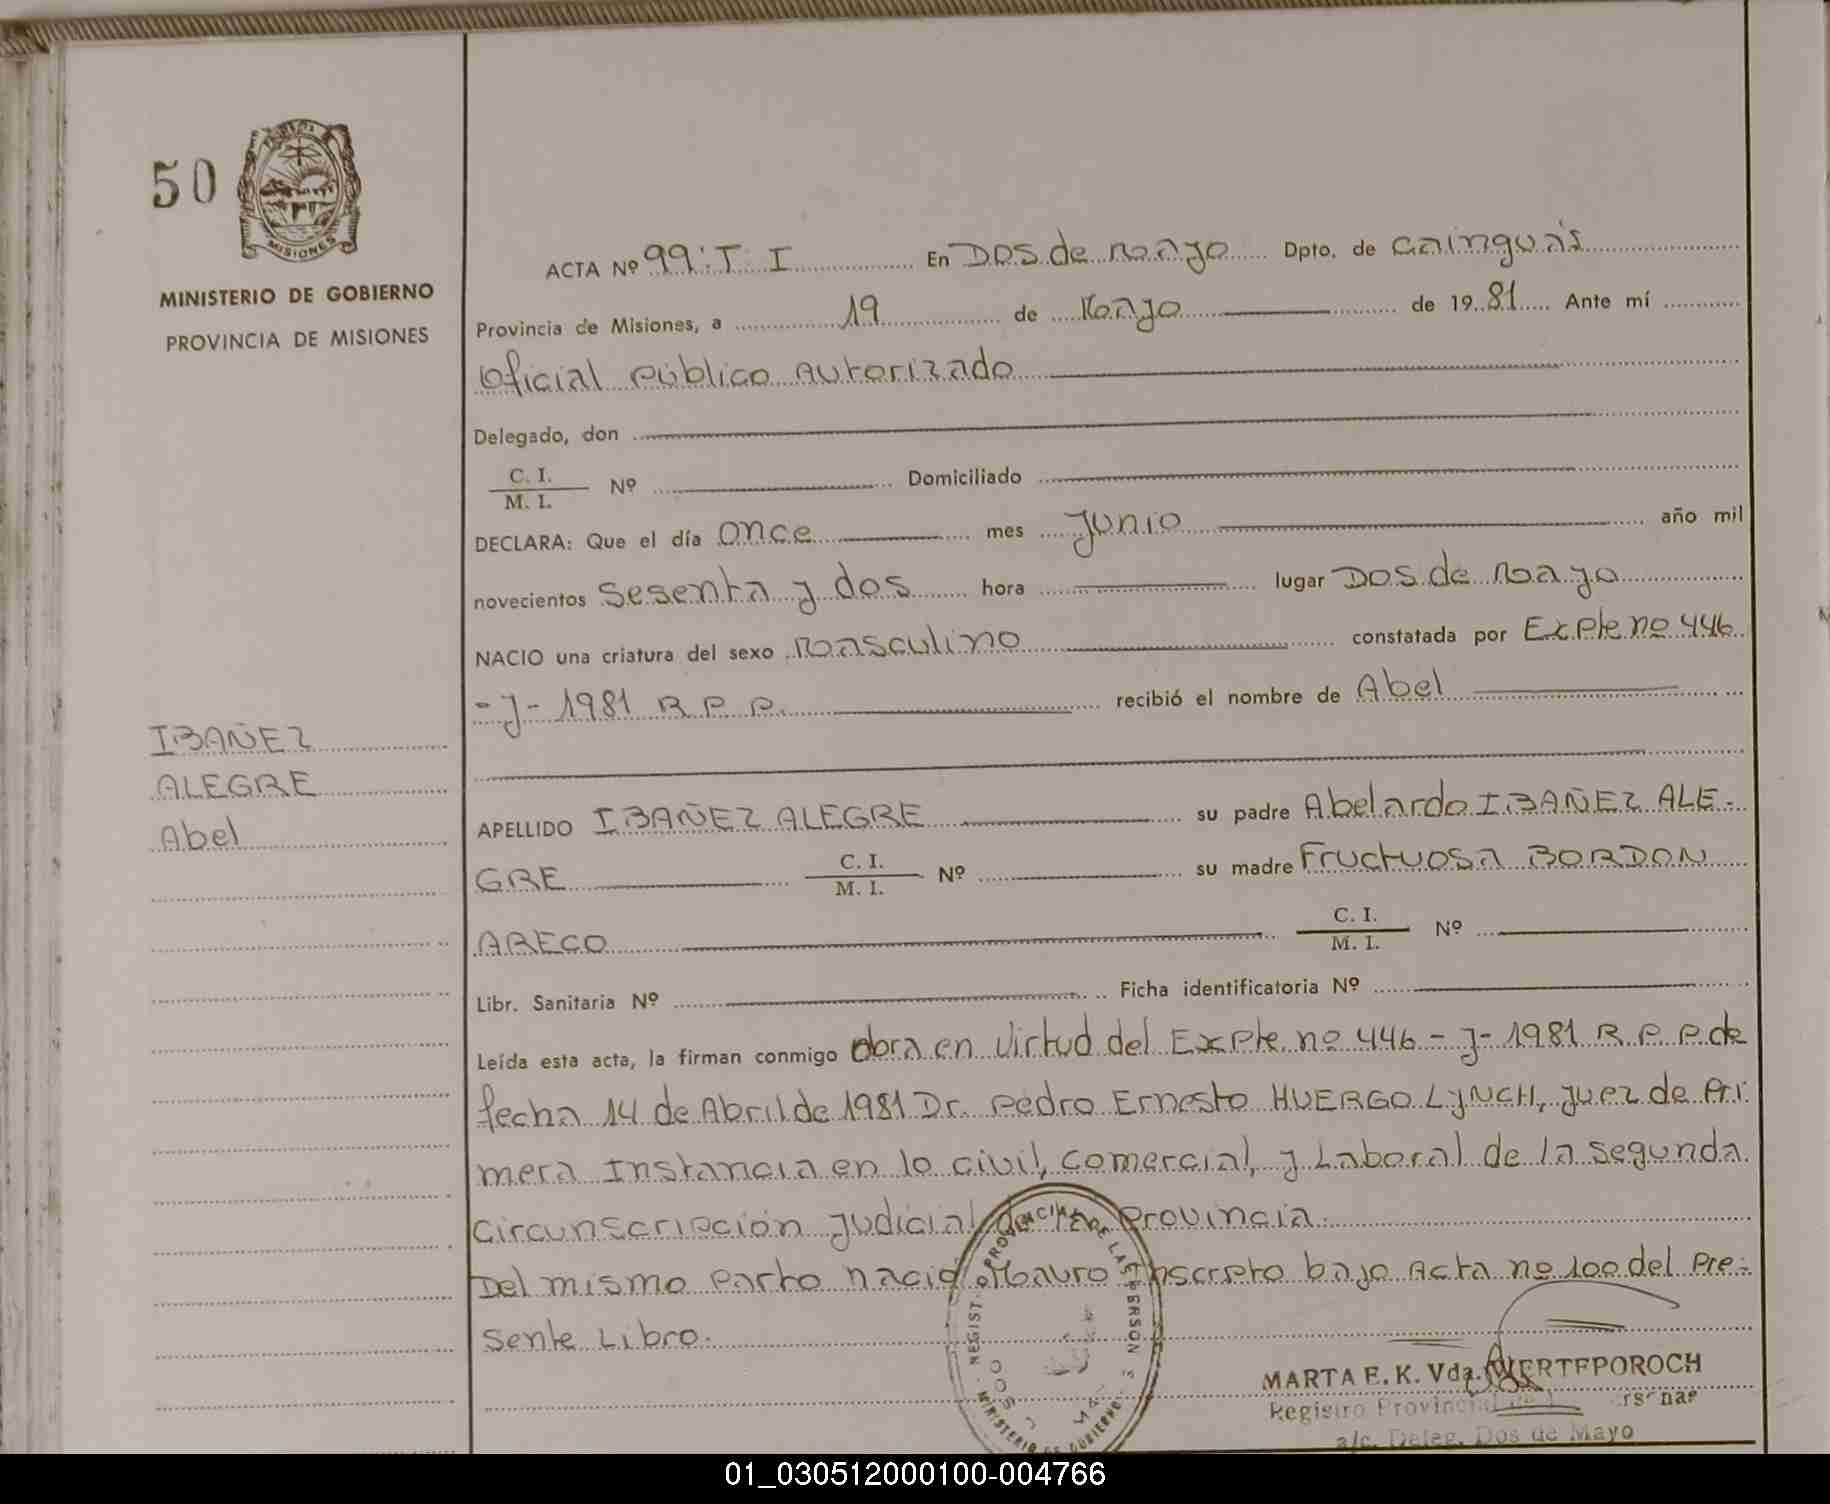 50
MISIONES
MINISTERIO DE GOBIERNO
PROVINCIA DE MISIONES
ACTA Nº 99: T: I En Dos de Mayo Dpto. de Cainguás
Provincia de Misiones, a 19 de Mayo de 1981 Ante mí
Oficial Público Autorizado
Delegado, don
C. I.
M. I. Nº Domiciliado
DECLARA: Que el día once mes junio año mil
novecientos sesenta y dos hora lugar Dos de Mayo
NACIO una criatura del sexo Masculino constatada por Expte nº 446
- J - 1981 R P P. recibió el nombre de Abel
IBAÑEZ
ALEGRE
Abel
APELLIDO IBAÑEZ ALEGRE su padre Abelardo IBAÑEZ ALE-
GRE C. I. M. I. Nº su madre Fructuosa BORDON
ARECO C. I. M. I. Nº
Libr. Sanitaria Nº Ficha identificatoria Nº
Leída esta acta, la firman conmigo obra en virtud del Expte. nº 446 - J - 1981 R P P de
fecha 14 de Abril de 1981 Dr. Pedro Ernesto HUERGO LYNCH, Juez de Pri
mera Instancia en lo civil, comercial, y Laboral de la segunda
circunscripción judicial de la Provincia.
Del mismo parto nació Mauro Inscripto bajo Acta nº 100 del Pre-
sente Libro.
MARTA E. K. Vda. WERTEPOROCH
Registro Provincial
a/c. Deleg. Dos de Mayo
01_030512000100-004766